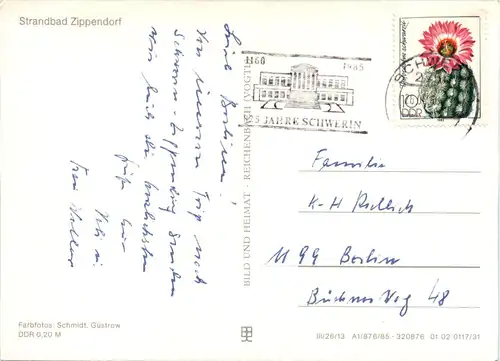 Strandbad Zippendorf
Liebe Berliner!
Von unserem Trip nach
Schwerin - Zippendorf senden
wir Euch die herzlichsten
Grüße
BILD UND HEIMAT · REICHENBACH (VOGTL)
1160 1985
825 JAHRE SCHWERIN
10
DDR
Familie
K-H
1199 Berlin
Weg 48
Farbfotos: Schmidt, Güstrow
DDR 0,20 M
III/26/13 A1/876/85 · 320876 01 02 0117/31